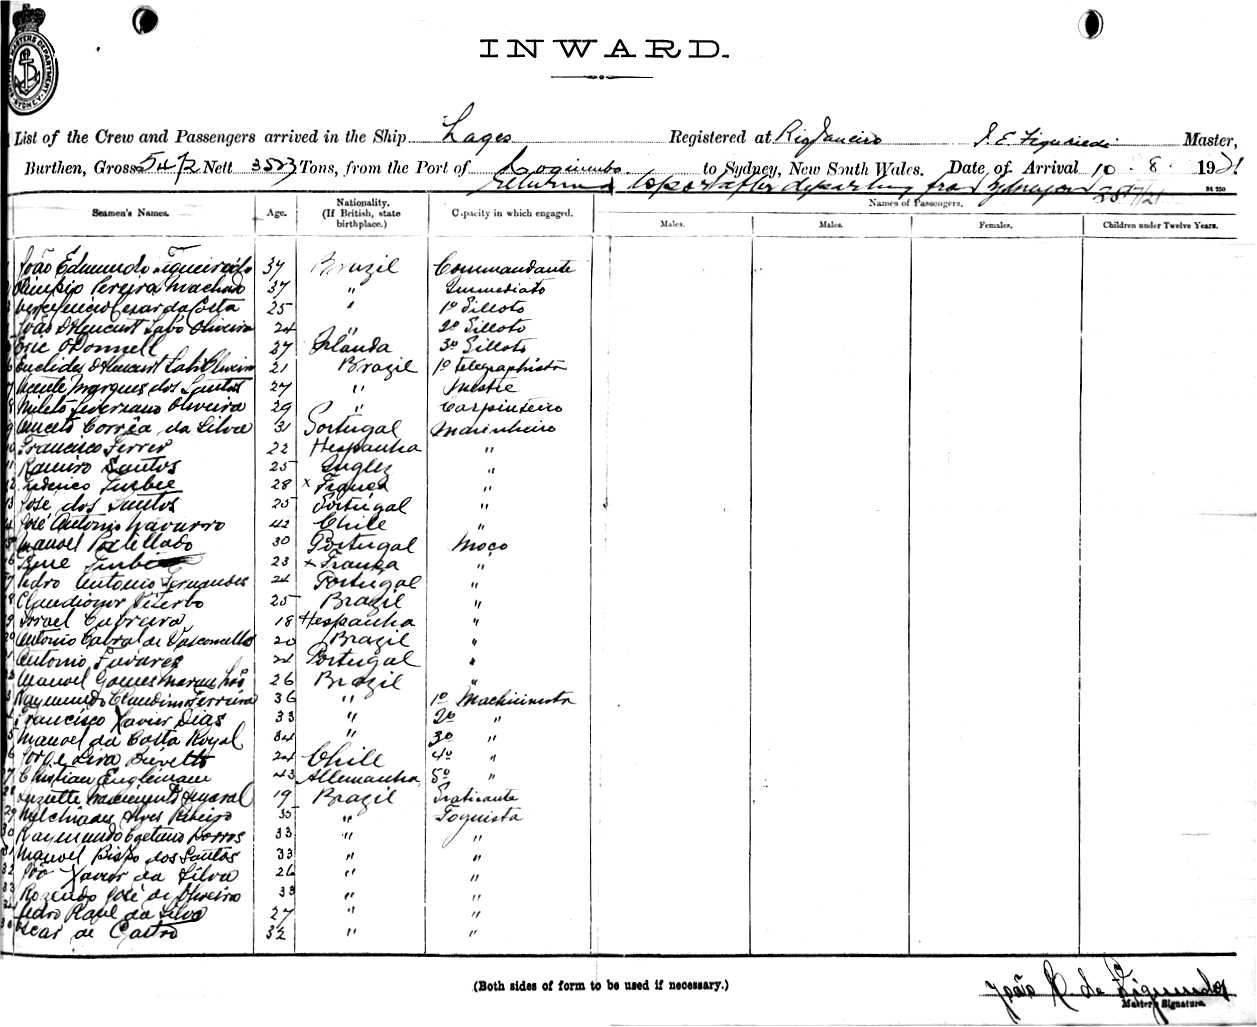 INWARD.
List of the Crew and Passengers arrived in the Ship Lages Registered at Rio Janeiro J. E. Figueiredo Master,
Burthen, Gross 5472 Nett 3573 Tons, from the Port of Coquimbo to Sydney, New South Wales. Date of Arrival 10 . 8 . 1921
returned to port after departing from Sydney on 25/7/21
Seamen's Names. Age. Nationality. (If British, state birthplace.) Capacity in which engaged. Names of Passengers.
Males. Males. Females. Children under Twelve Years.
1 João Edmundo Figueiredo 37 Brazil Commandante
2 Pereira Machado 37 " Immediato
3 Cesar da Costa 25 " 1º Pilloto
4 João Lobo Oliveira 24 " 2º Pilloto
5 Eric O'Donnell 27 Irlanda 3º Pilloto
6 Euclides Oliveira 21 Brazil 1º telegraphista
7 Vicente Marques dos Santos 27 " Mestre
8 Severiano Oliveira 29 " Carpinteiro
9 Aniceto Corrêa da Silva 31 Portugal Marinheiro
10 Francisco Ferrer 22 Hespanha "
11 Ramiro Santos 25 Inglez "
12 Frederico 28 x França "
13 José dos Santos 25 Portugal "
14 José Antonio Navarro 42 Chile "
15 Manoel 30 Portugal Moço
16 23 x França "
17 Pedro Antonio Fernandes 24 Portugal "
18 Claudionor Viterbo 25 Brazil "
19 Israel Cabreira 18 Hespanha "
20 Antonio Cabral de Vasconcellos 20 Brazil "
21 Antonio Tavares 24 Portugal "
22 Manoel Gomes Maranhão 26 Brazil "
23 Raymundo Claudino Ferreira 36 " 1º Machinista
24 Francisco Xavier Dias 33 " 2º "
25 Manoel da Costa Royal 34 " 3º "
26 Jorge Lira 24 Chile 4º "
27 Christian Englemann 43 Allemanha 5º "
28 Nascimento Amaral 19 Brazil Praticante
29 Melchiades Alves Ribeiro 35 " Foguista
30 Raymundo Caetano Barros 33 " "
31 Manoel Bispo dos Santos 33 " "
32 João Xavier da Silva 26 " "
33 Rozendo José de Oliveira 33 " "
34 Pedro Raul da Silva 27 " "
35 Oscar de Castro 32 " "
(Both sides of form to be used if necessary.)
João E. de Figueiredo
Master's Signature.